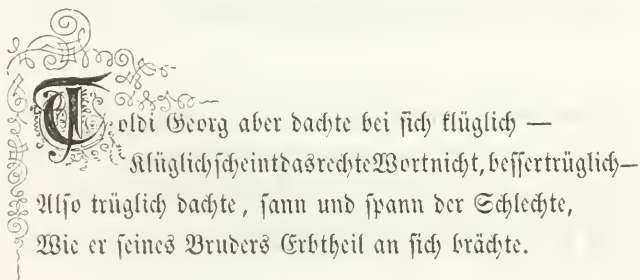 Toldi Georg aber dachte bei sich klüglich —
Klüglich scheint das rechte Wort nicht, besser trüglich—
Also trüglich dachte, sann und spann der Schlechte,
Wie er seines Bruders Erbtheil an sich brächte.